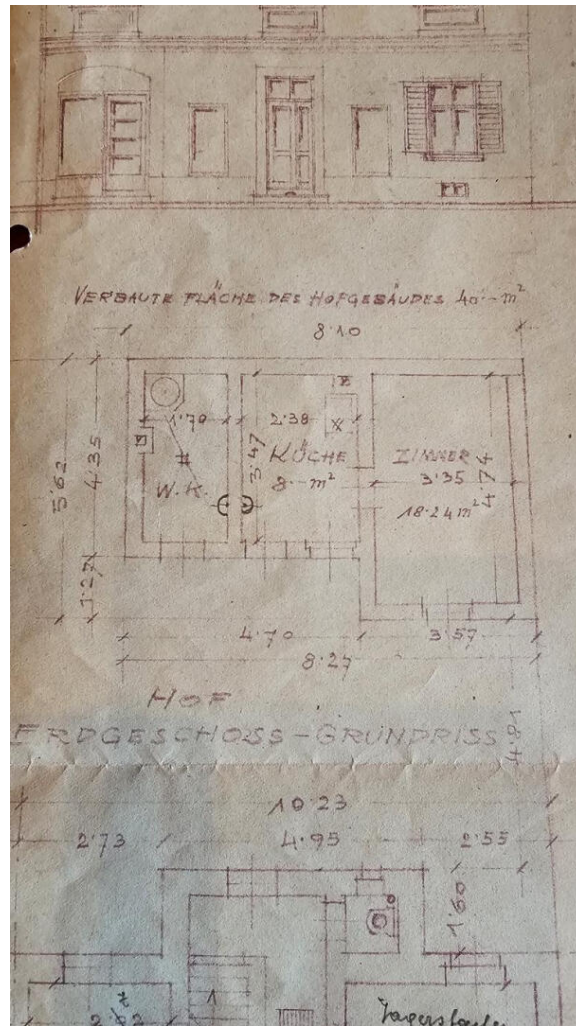 VERBAUTE FLÄCHE DES HOFGEBÄUDES 40·-- m²
8·10
1·70
2·38
5·62
4·35
3·47
KÜCHE
8·-- m²
W.K.
ZIMMER
3·35
4·74
18·24 m²
1·27
4·70
3·57
8·27
HOF
ERDGESCHOSS-GRUNDRISS
4·81
10·23
2·73
4·95
2·55
1·60
1